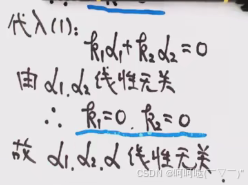 代入(1):
k₁α₁+k₂α₂=0
由α₁.α₂线性无关
∴ k₁=0. k₂=0
故 α₁.α₂.α 线性无关.